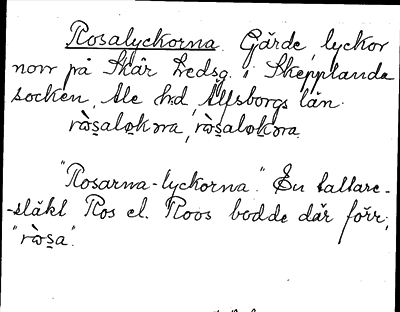 Rosalyckorna. Gärde, lyckor
norr på Skår fredsg. i Skepplanda
socken, Ale hd, Älfsborgs län.
ràʋsalɵkɷra, ràʋsalɵkɷra.
"Rosarna-lyckorna." En tattare-
-släkt Ros el. Roos bodde där förr,
"ràʋsa".